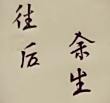 余生
往后